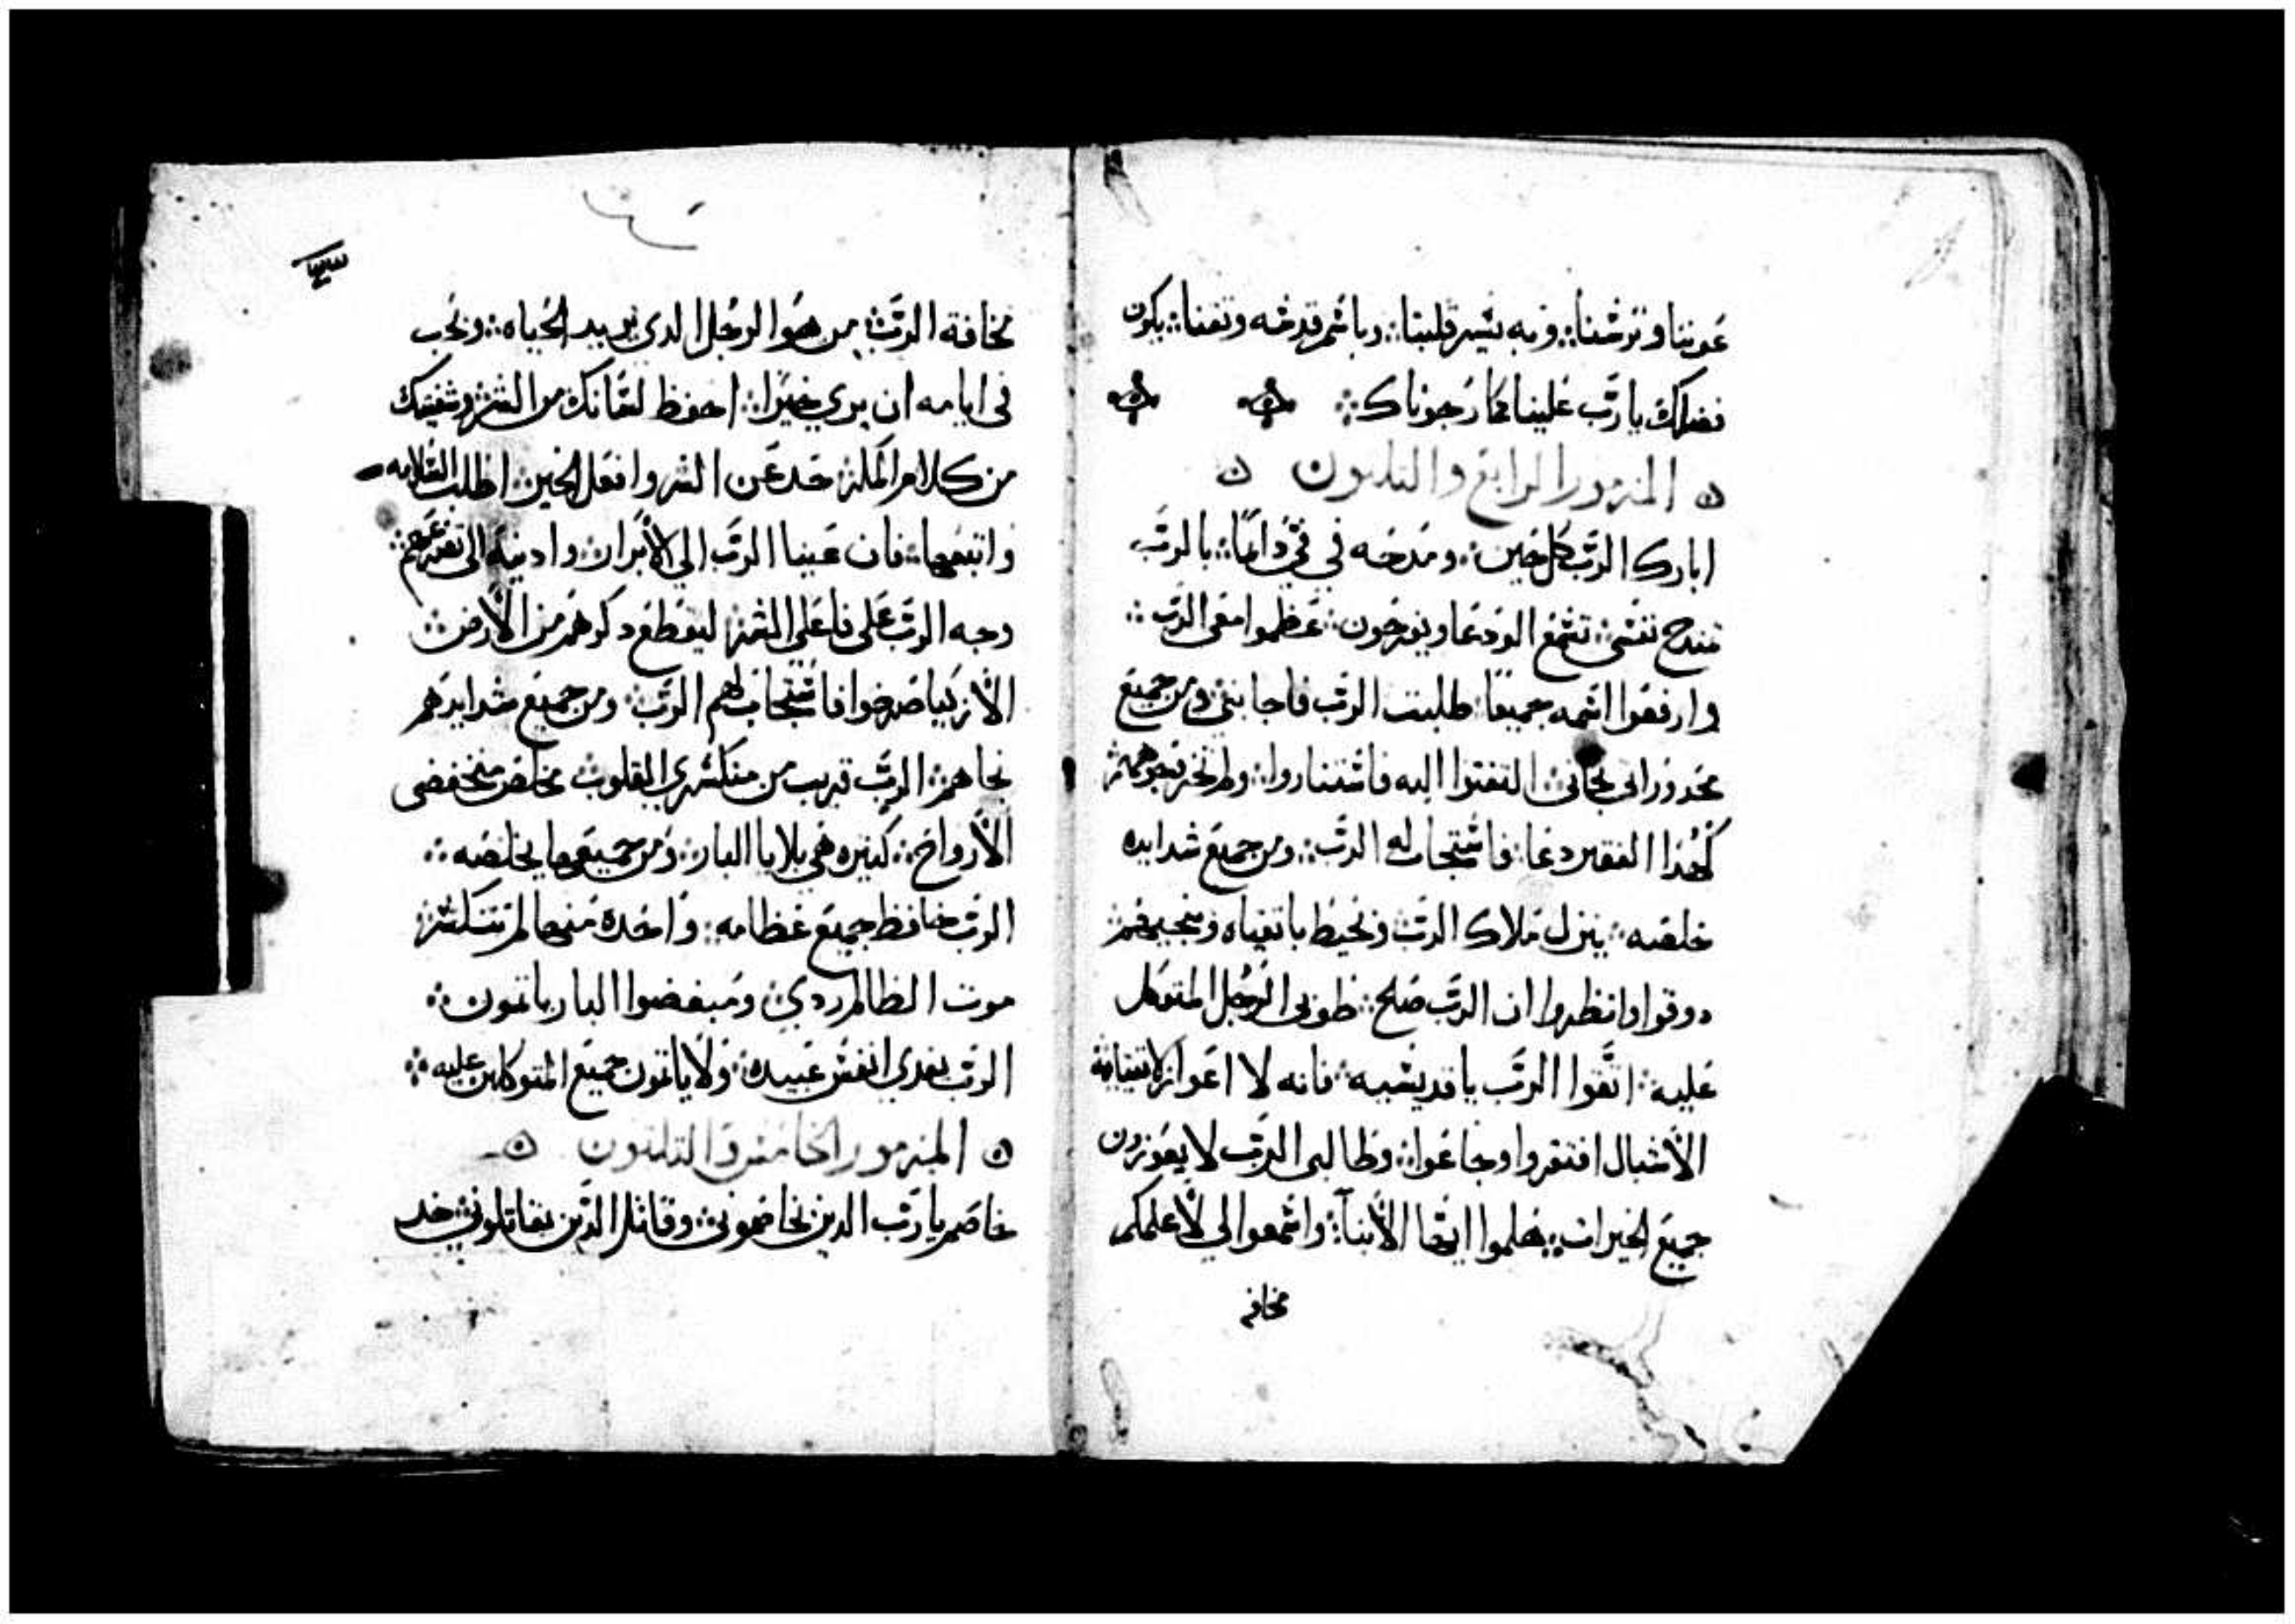 عوننا وترسنا؞ وبه تسر قلبنا؞ وباسم قدسه وتقنا؞ يكون
فضلك يارب علينا كما رجوناك؞
المزمور الرابع والتلتون
ابارك الرب كل حين؞ ومدحه في فيّ دايمًا؞ بالرب
تمتدح نفسي؞ تسمع الودعا ويفرحون؞ عظموا معي الرب؞
وارفعوا اسمه جميعا؞ طلبت الرب فاجابني؞ ومن جميع
محدوراتي نجاني؞ التفتوا اليه فاستناروا؞ ولم تخز وجوههم؞
لهذا الفقير دعا؞ فاستجاب له الرب؞ ومن جميع شدايده
خلصه؞ ينزل ملاك الرب ونحيط باتقياه وينجيهم؞
دوقوا وانظروا ان الرب صلح؞ طوبى الرجل المتوكل
عليه؞ اتقوا الرب يا قديسيه؞ فانه لا اعواز لاتقيايه؞
الأشبال افتقروا وجاعوا؞ وطالبى الرب لا يعوزون
جميع الخيرات؞ هلموا ايها الأبناء؞ واسمعوا الي لأعلمكم
مخافه
مخافة الرب؞ من هوا الرجل الدي يريد الحياه؞ ونحب
في ايامه ان يري خيرًا؞ احفظ لسانك من الشر وشفتيك
من كلام المكر؞ حد عن الشر وافعل الخير؞ اطلب السلامه
واتبعها؞ فان عينا الرب الي الأبرار؞ وادنيه الى تضرعهم؞
وجه الرب على فاعلي الشر؞ ليقطع دكرهم من الأرض؞
الأزكيا صرخوا فاستجاب لهم الرب؞ ومن جميع شدايدهم
نجاهم؞ الرب قريب من منكسري القلوب؞ مخلص منخفضى
الأرواح؞ كتيره هي بلايا البار؞ ومن جميعها يخلصه؞
الرب حافظ جميع عظامه؞ واحده منها لم تنكسر؞
موت الظالم ردي؞ ومبغضوا البار ياتمون؞
الرب يفدي انفس عبيده؞ ولا ياتمون جميع المتوكلين عليه؞
المزمور الخامس والتلتون
خاصم يا رب الدين نخاصموني؞ وقاتل الدين يقاتلوني؞ خد